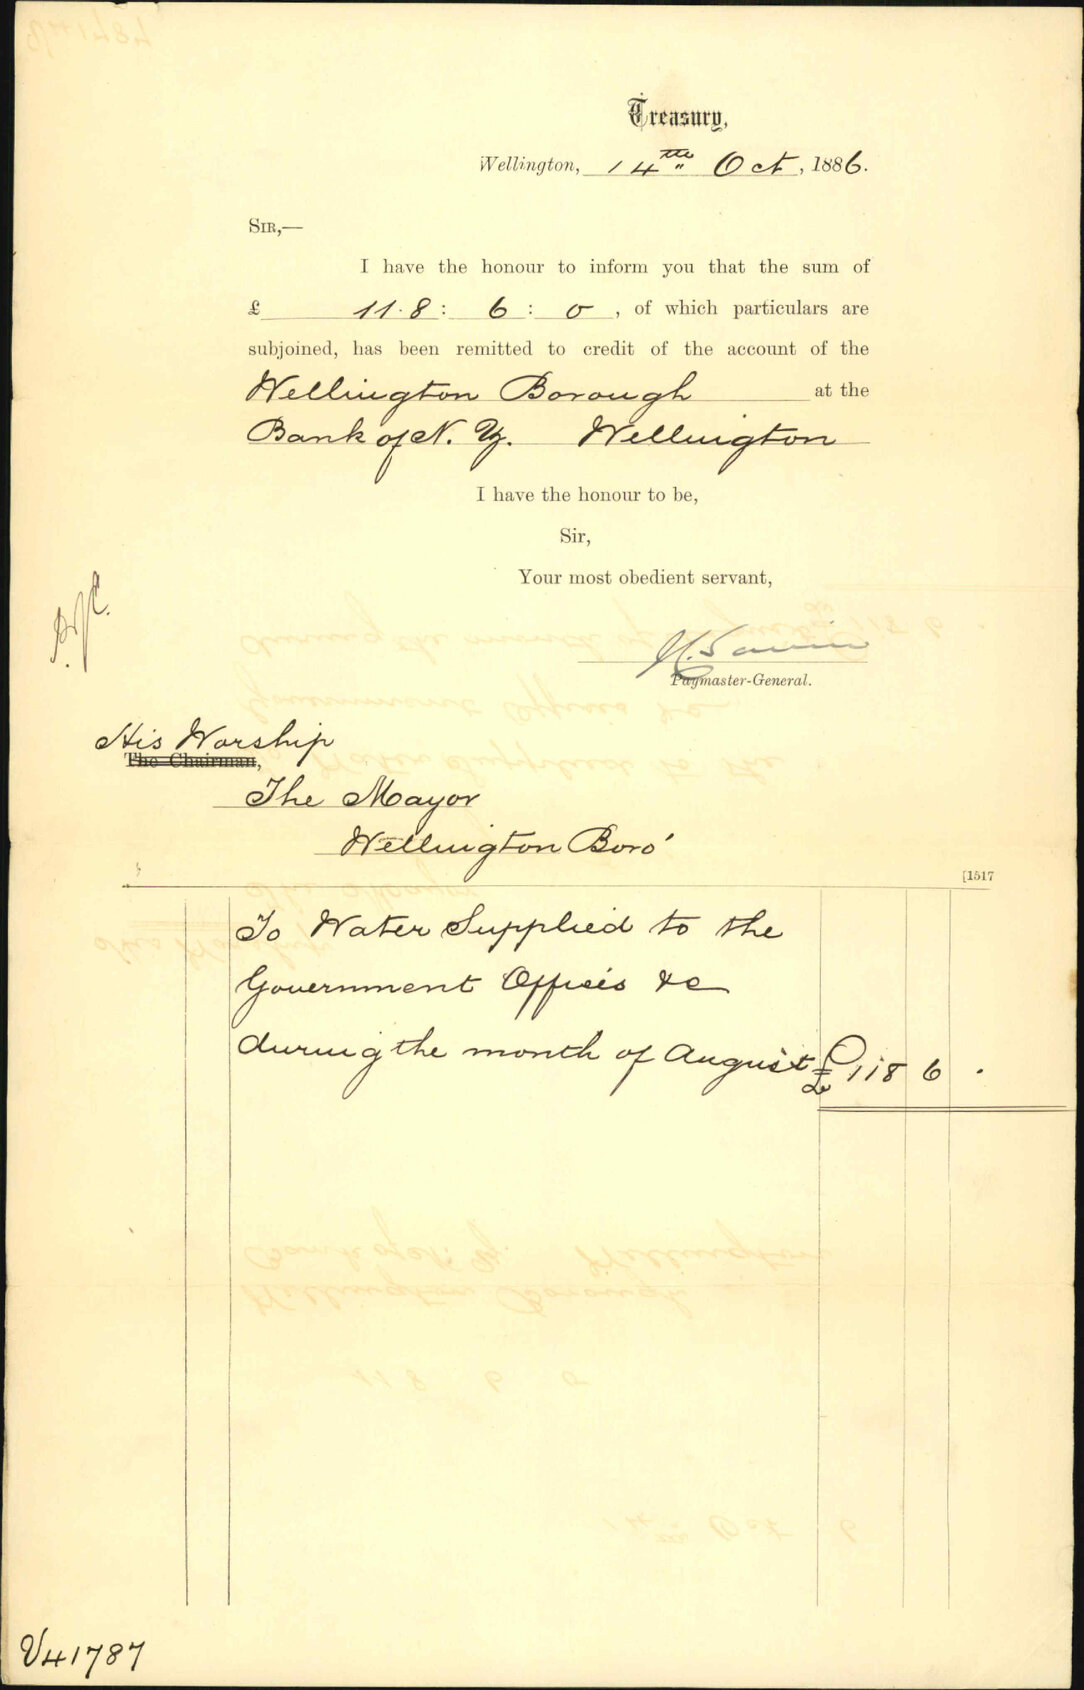 Treasury,
Wellington, 14th Oct, 1886.
SIR,—
I have the honour to inform you that the sum of
£ 118 : 6 : 0, of which particulars are
subjoined, has been remitted to credit of the account of the
Wellington Borough at the
Bank of N. Z. Wellington
I have the honour to be,
Sir,
Your most obedient servant,
Paymaster-General.
His Worship
The Chairman,
The Mayor
Wellington Boro'
[1517
To Water Supplied to the
Government Offices &c
during the month of August £ 118 6 .
V41787